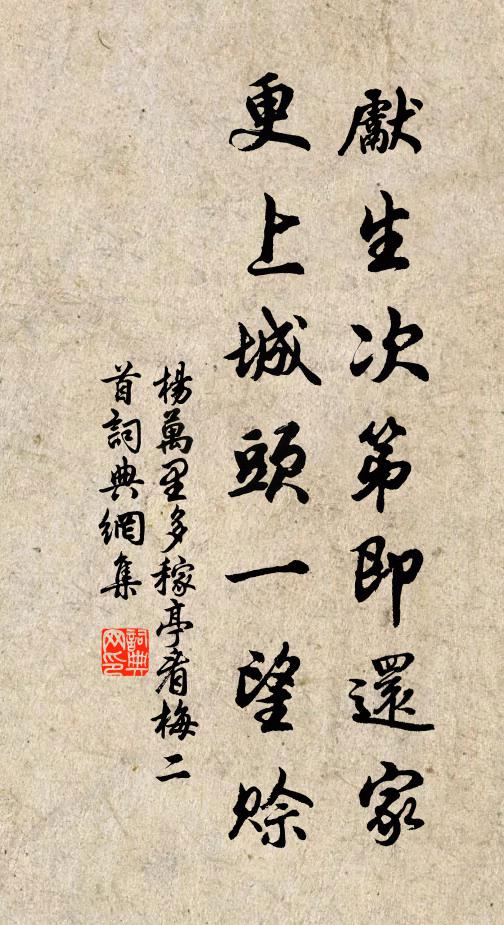 獻生次第即還家
更上城頭一望賒
楊萬里多稼亭看梅二
首詞典網集
詞典
网印